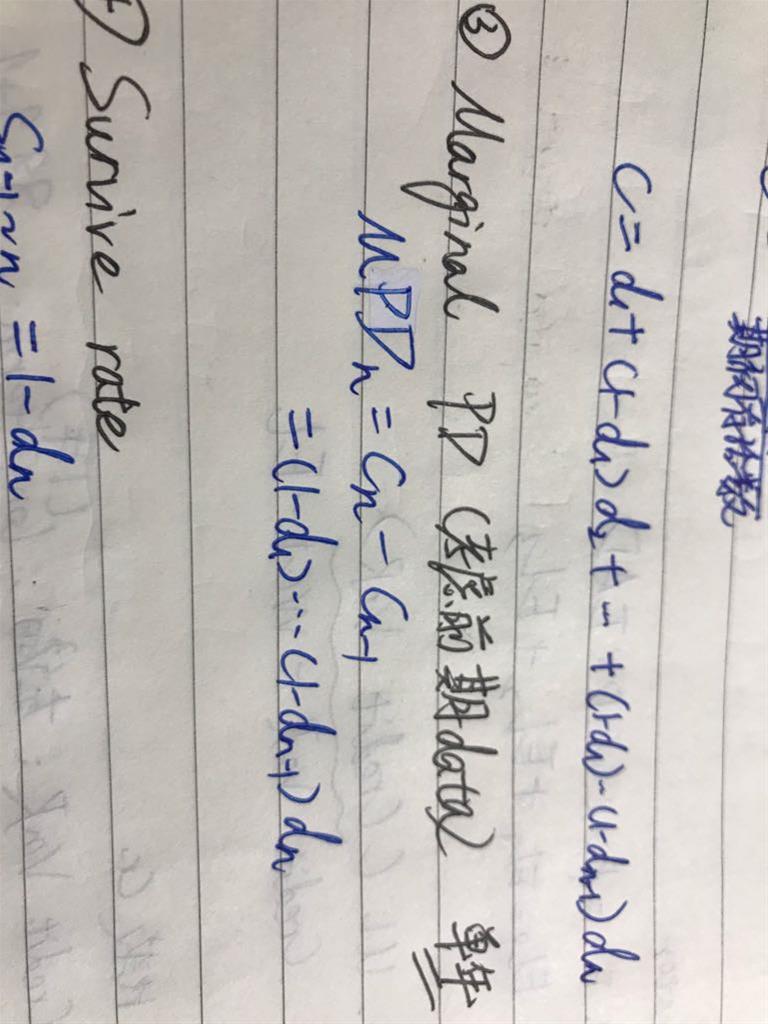 C = d₁ + (1-d₁)d₂ + … + (1-d₁)…(1-dₙ₋₁)dₙ
③ Marginal PD (考虑前期data) 单年
MPDₙ = Cₙ - Cₙ₋₁
= (1-d₁)…(1-dₙ₋₁)dₙ
Survive rate
Sₙ₋₁~ₙ = 1-dₙ